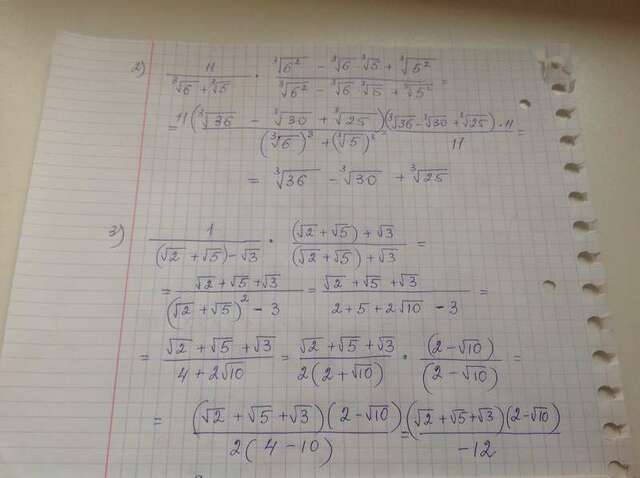 2) 11/(∛6 + ∛5) · (∛6² - ∛6 · ∛5 + ∛5²)/(∛6² - ∛6 · ∛5 + ∛5²) =
= 11(∛36 - ∛30 + ∛25)/((∛6)³ + (∛5)³) = (∛36 - ∛30 + ∛25) · 11/11 =
= ∛36 - ∛30 + ∛25
3) 1/((√2 + √5) - √3) · ((√2 + √5) + √3)/((√2 + √5) + √3) =
= (√2 + √5 + √3)/((√2 + √5)² - 3) = (√2 + √5 + √3)/(2 + 5 + 2√10 - 3) =
= (√2 + √5 + √3)/(4 + 2√10) = (√2 + √5 + √3)/(2(2 + √10)) · (2 - √10)/(2 - √10) =
= (√2 + √5 + √3)(2 - √10)/(2(4 - 10)) = (√2 + √5 + √3)(2 - √10)/(-12)